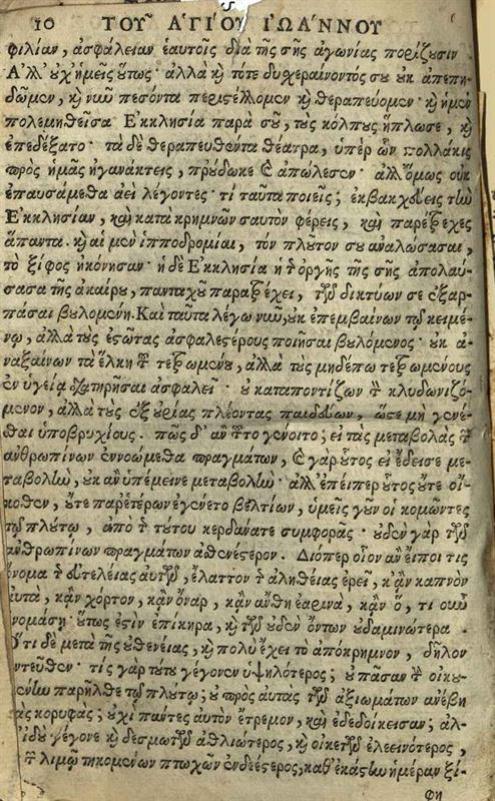 10 ΤΟΥ ἉΓΙΟΥ ἸΩΑΝΝΟΥ
φιλίαν, ἀσφάλειαν ἑαυτοῖς διὰ τῆς σῆς ἀγωνίας πορίζουσιν
Ἀλλ' οὐχ ἡμεῖς οὕτως· ἀλλὰ καὶ τότε δυσχεραίνοντός σου οὐκ ἀπεπη-
δῶμεν, καὶ νῦν πεσόντα περιστέλλομεν καὶ θεραπεύομεν· καὶ ἡ μὲν
πολεμηθεῖσα Ἐκκλησία παρὰ σοῦ, τοὺς κόλπους ἥπλωσε, καὶ
ἐπεδέξατο· τὰ δὲ θεραπευθέντα θέατρα, ὑπὲρ ὧν πολλάκις
πρὸς ἡμᾶς ἠγανάκτεις, προύδωκε καὶ ἀπώλεσεν· ἀλλ' ὅμως οὐκ
ἐπαυσάμεθα ἀεὶ λέγοντες· τί ταῦτα ποιεῖς; ἐκβακχεύεις τὴν
Ἐκκλησίαν, καὶ κατὰ κρημνῶν σαυτὸν φέρεις, καὶ παρέτρεχες
ἅπαντα. καὶ αἱ μὲν ἱπποδρομίαι, τὸν πλοῦτον σου ἀναλώσασαι,
τὸ ξίφος ἠκόνησαν· ἡ δὲ Ἐκκλησία ἡ τῆς ὀργῆς τῆς σῆς ἀπολαύ-
σασα τῆς ἀκαίρου, πανταχοῦ παρατρέχει, τῶν δικτύων σε ἐξαρ-
πάσαι βουλομένη. Καὶ ταῦτα λέγω νῦν, οὐκ ἐπεμβαίνων τῷ κειμέ-
νῳ, ἀλλὰ τοὺς ἑστῶτας ἀσφαλεστέρους ποιῆσαι βουλόμενος· οὐκ ἀ-
ναξαίνων τὰ ἕλκη τοῦ τετρωμένου, ἀλλὰ τοὺς μηδέπω τετρωμένους
ἐν ὑγείᾳ διατηρῆσαι ἀσφαλεῖ· οὐ καταποντίζων τὸν κλυδωνιζό-
μενον, ἀλλὰ τοὺς ἐξ οὐρίας πλέοντας παιδεύων, ὥστε μὴ γενέ-
σθαι ὑποβρυχίους. πῶς δ' ἂν τοῦτο γένοιτο; εἰ τὰς μεταβολὰς τῶν
ἀνθρωπίνων ἐννοώμεθα πραγμάτων, καὶ γὰρ οὗτος εἰ ἔδεισε με-
ταβολὴν, οὐκ ἂν ὑπέμεινε μεταβολήν· ἀλλ' ἐπείπερ οὗτος οὔτε οἴ-
κοθεν, οὔτε παρ' ἑτέρων ἐγένετο βελτίων, ὑμεῖς γοῦν οἱ κομῶντες
τῷ πλούτῳ, ἀπὸ τῆς τούτου κερδάνατε συμφορᾶς· οὐδὲν γὰρ τῶν
ἀνθρωπίνων πραγμάτων ἀσθενέστερον. Διόπερ οἷον ἂν εἴποι τις
ὄνομα τῆς εὐτελείας αὐτῶν, ἔλαττον τῆς ἀληθείας ἐρεῖ, κἂν καπνὸν
αὐτὰ, κἂν χόρτον, κἂν ὄναρ, κἂν ἄνθη ἐαρινὰ, κἂν ὅ, τι οὖν
ὀνομάσῃ· οὕτως ἐστὶν ἐπίκηρα, καὶ τῶν οὐδὲν ὄντων οὐδαμινώτερα.
Ὅτι δὲ μετὰ τῆς οὐθενείας, καὶ πολὺ ἔχει τὸ ἀπόκρημνον, δῆλον
ἐντεῦθεν· τίς γὰρ τούτου γέγονεν ὑψηλότερος; οὐ πᾶσαν τὴν οἰκου-
μένην παρῆλθε τῷ πλούτῳ; οὐ πρὸς αὐτὰς τῶν ἀξιωμάτων ἀνέβη
τὰς κορυφάς; οὐχὶ πάντες αὐτὸν ἔτρεμον, καὶ ἐδεδοίκεισαν; ἀλ-
λ' ἰδοὺ γέγονε καὶ δεσμωτῶν ἀθλιώτερος, καὶ οἰκετῶν ἐλεεινότερος,
καὶ τῶν λιμῷ τηκομένων πτωχῶν ἐνδεέστερος, καθ' ἑκάστην ἡμέραν ξί-
φη